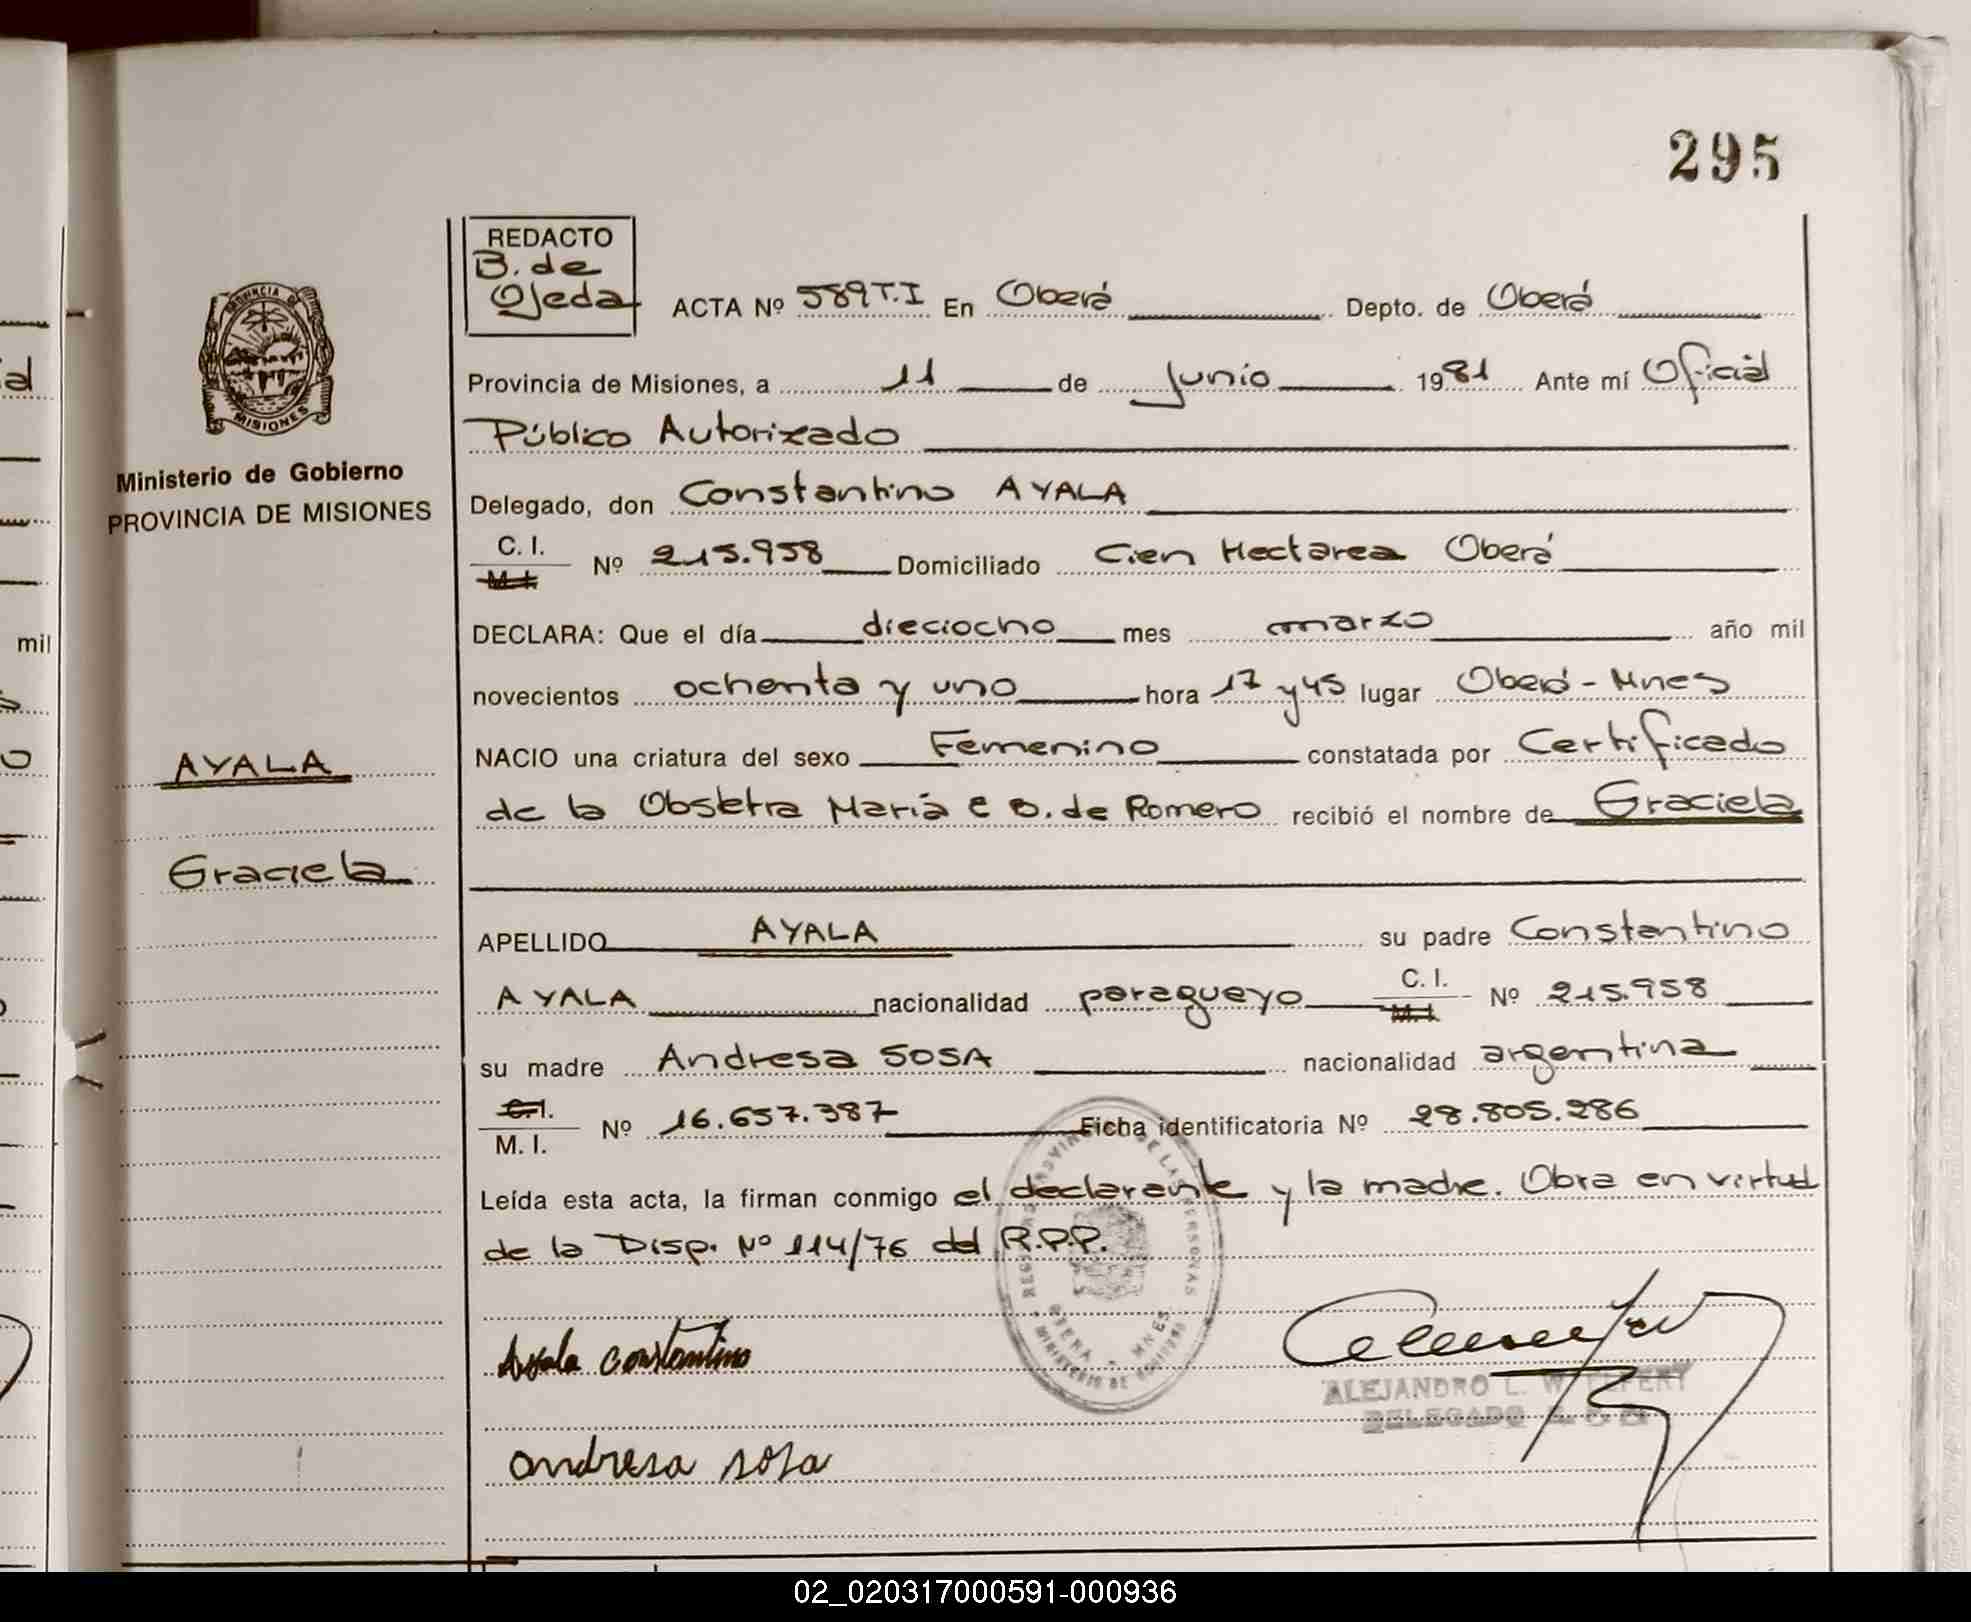 295
REDACTO
B. de
Ojeda
ACTA Nº 589 T.I En Oberá Depto. de Oberá
Provincia de Misiones, a 11 de Junio 1981 Ante mí Oficial
Público Autorizado
Delegado, don Constantino AYALA
C. I.
M. I.
Nº 215.958 Domiciliado Cien Hectarea Oberá
DECLARA: Que el día dieciocho mes marzo año mil
novecientos ochenta y uno hora 17 y 45 lugar Oberá - Mnes
NACIO una criatura del sexo Femenino constatada por Certificado
de la Obstetra María E B. de Romero recibió el nombre de Graciela
APELLIDO AYALA su padre Constantino
AYALA nacionalidad paraguayo C. I. M. I. Nº 215.958
su madre Andresa SOSA nacionalidad argentina
C. I.
M. I.
Nº 16.657.387 Ficha identificatoria Nº 28.805.286
Leída esta acta, la firman conmigo el declarante y la madre. Obra en virtud
de la Disp. Nº 114/76 del R.P.P.
Ayala constantino
andresa sosa
ALEJANDRO L.
DELEGADO
PROVINCIA DE
MISIONES
Ministerio de Gobierno
PROVINCIA DE MISIONES
AYALA
Graciela
mil
02_020317000591-000936